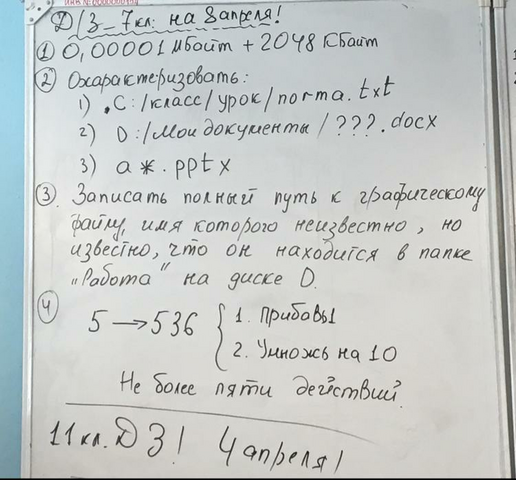 Д/З - 7 кл. на 8 апреля!
① 0,00001 Мбайт + 2048 Кбайт
② Охарактеризовать:
1) .C:/класс/урок/norma.txt
2) D:/Мои документы/???.docx
3) a*.pptx
③. Записать полный путь к графическому
файлу, имя которого неизвестно, но
известно, что он находится в папке
„Работа" на диске D.
④ 5 → 536 { 1. Прибавь 1
2. Умножь на 10
Не более пяти действий.
11 кл. ДЗ! 4 апреля!